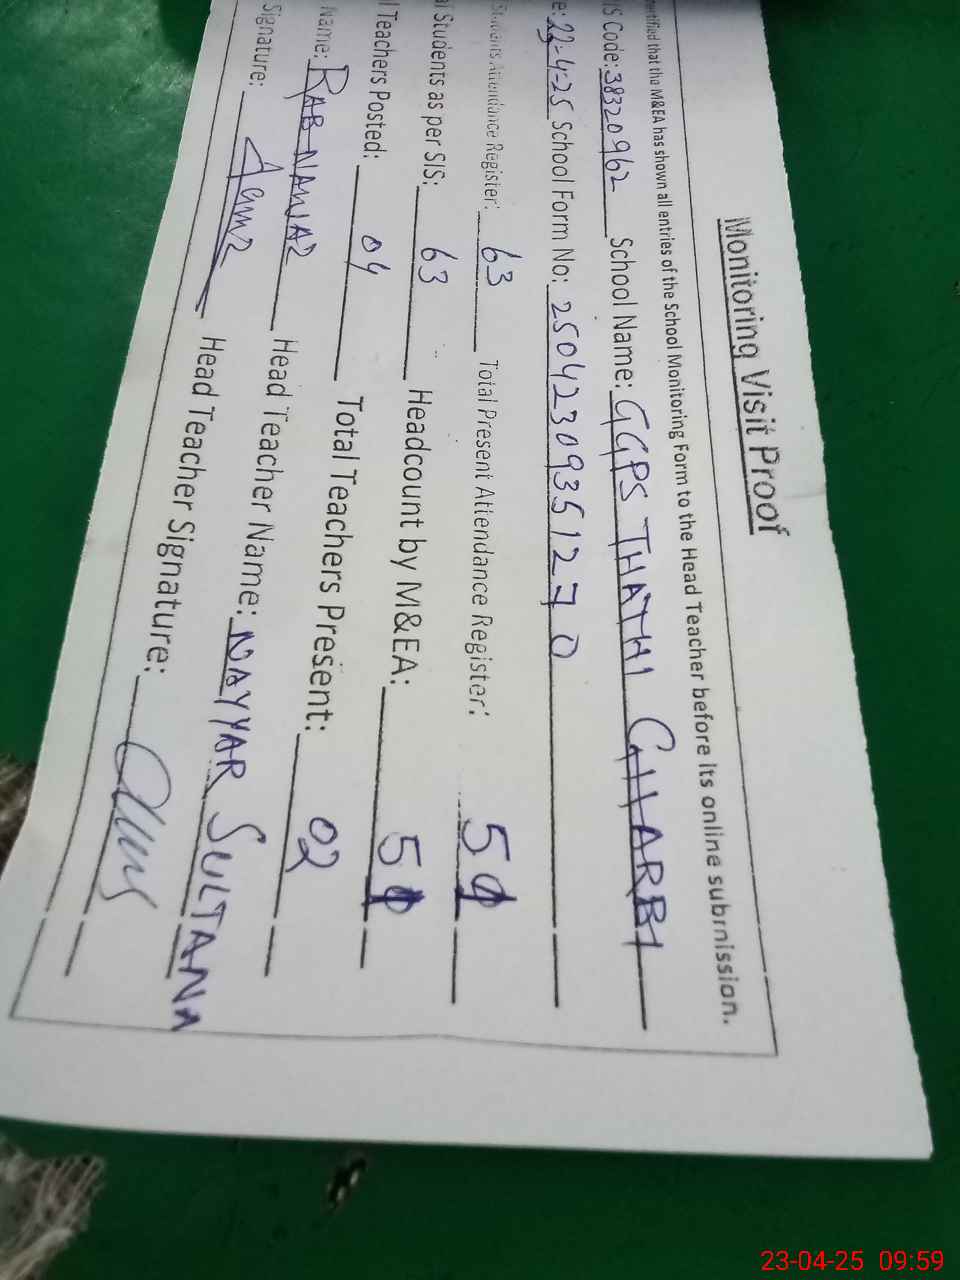 Monitoring Visit Proof
certified that the M&EA has shown all entries of the School Monitoring Form to the Head Teacher before its online submission.
IS Code: 38320962 School Name: GGPS THATHI GHARBI
e: 23-4-25 School Form No: 25042309351270
Students Attendance Register: 63 Total Present Attendance Register:
Students as per SIS: 63 Headcount by M&EA:
l Teachers Posted: 04 Total Teachers Present: 02
Name: RAB NAWAZ Head Teacher Name: NAYYAR SULTANA
Signature: Head Teacher Signature:
23-04-25 09:59